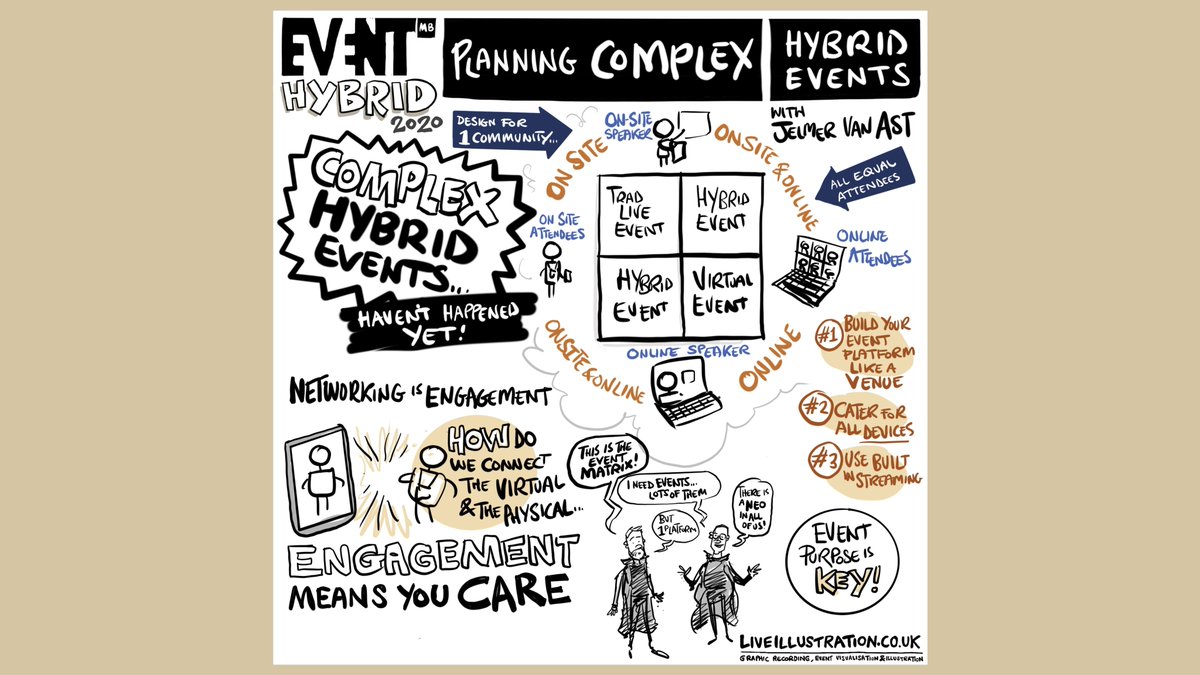 EVENT MB
HYBRID
2020
PLANNING COMPLEX
HYBRID
EVENTS
WITH
JELMER VAN AST
DESIGN FOR
1 COMMUNITY...
ON-SITE
SPEAKER
ON SITE
ONSITE & ONLINE
ALL EQUAL
ATTENDEES
COMPLEX
HYBRID
EVENTS...
HAVEN'T HAPPENED
YET!
ON SITE
ATTENDEES
TRAD
LIVE
EVENT
HYBRID
EVENT
HYBRID
EVENT
VIRTUAL
EVENT
ONLINE
ATTENDEES
ONSITE & ONLINE
ONLINE SPEAKER
ONLINE
#1 BUILD YOUR
EVENT
PLATFORM
LIKE A
VENUE
#2 CATER FOR
ALL DEVICES
#3 USE BUILT
IN STREAMING
NETWORKING IS ENGAGEMENT
HOW DO
WE CONNECT
THE VIRTUAL
& THE PHYSICAL...
ENGAGEMENT
MEANS YOU CARE
THIS IS THE
EVENT
MATRIX!
I NEED EVENTS...
LOTS OF THEM
BUT
1 PLATFORM
THERE IS
A NEO
IN ALL
OF US!
EVENT
PURPOSE IS
KEY!
LIVEILLUSTRATION.CO.UK
GRAPHIC RECORDING, EVENT VISUALISATION & ILLUSTRATION